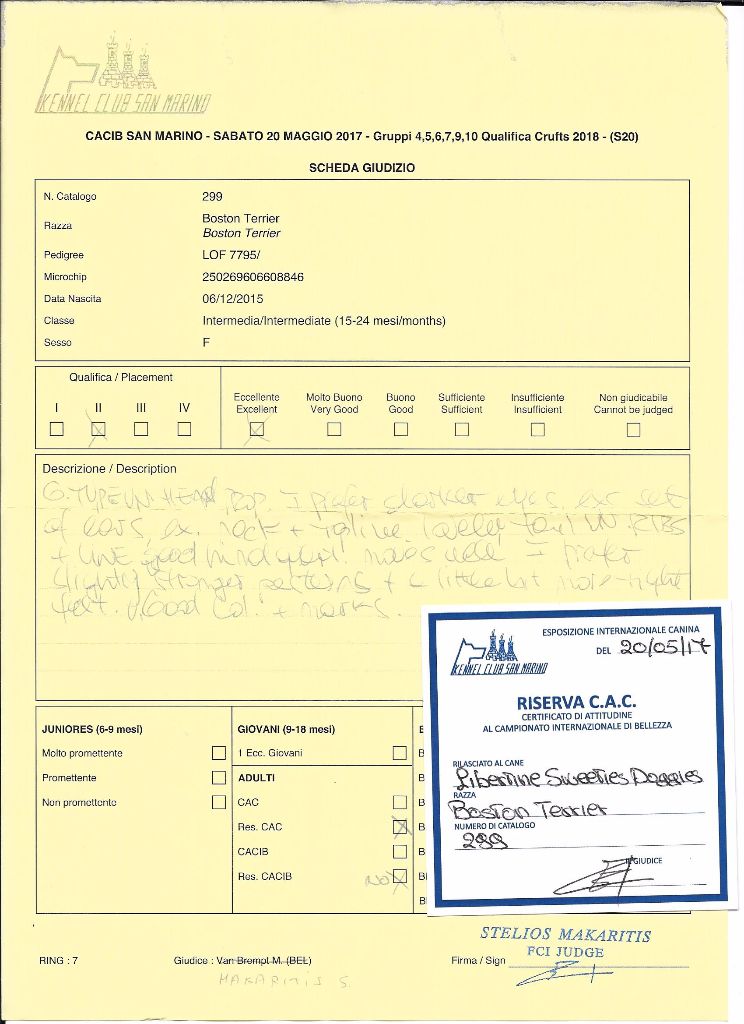 KENNEL CLUB SAN MARINO
CACIB SAN MARINO - SABATO 20 MAGGIO 2017 - Gruppi 4,5,6,7,9,10 Qualifica Crufts 2018 - (S20)
SCHEDA GIUDIZIO
N. Catalogo 299
Razza Boston Terrier
Boston Terrier
Pedigree LOF 7795/
Microchip 250269606608846
Data Nascita 06/12/2015
Classe Intermedia/Intermediate (15-24 mesi/months)
Sesso F
Qualifica / Placement
I II III IV
Eccellente Molto Buono Buono Sufficiente Insufficiente Non giudicabile
Excellent Very Good Good Sufficient Insufficient Cannot be judged
Descrizione / Description
G. TYPE IN HEAD I prefer darker eyes. exc set
of ears, ex. neck + topline. IN RIBS
+ good moves well I prefer
slightly stronger pasterns + a little bit more tight
feet. V. Good Col. + marks.
JUNIORES (6-9 mesi)
Molto promettente
Promettente
Non promettente
GIOVANI (9-18 mesi)
1 Ecc. Giovani
ADULTI
CAC
Res. CAC
CACIB
Res. CACIB NO
KENNEL CLUB SAN MARINO
ESPOSIZIONE INTERNAZIONALE CANINA
DEL 20/05/17
RISERVA C.A.C.
CERTIFICATO DI ATTITUDINE
AL CAMPIONATO INTERNAZIONALE DI BELLEZZA
RILASCIATO AL CANE
Libertine Sweeties Doggies
RAZZA
Boston Terrier
NUMERO DI CATALOGO
299
IL GIUDICE
STELIOS MAKARITIS
FCI JUDGE
RING : 7 Giudice : Van Brempt M. (BEL) Firma / Sign
MAKARITIS S.